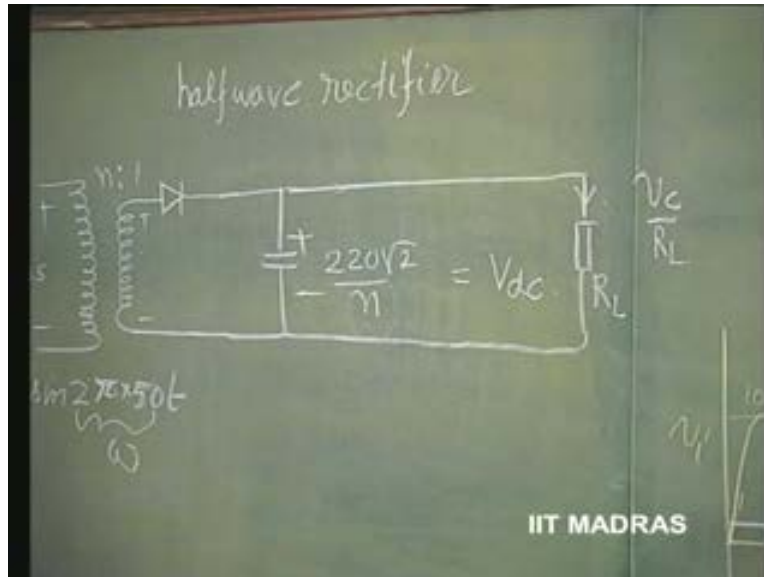 halfwave rectifier
n:1
+
+
s
-
-
+
- 220√2/n = Vdc
RL
vc/RL
sin 2π×50t
ω
10
vi
IIT MADRAS